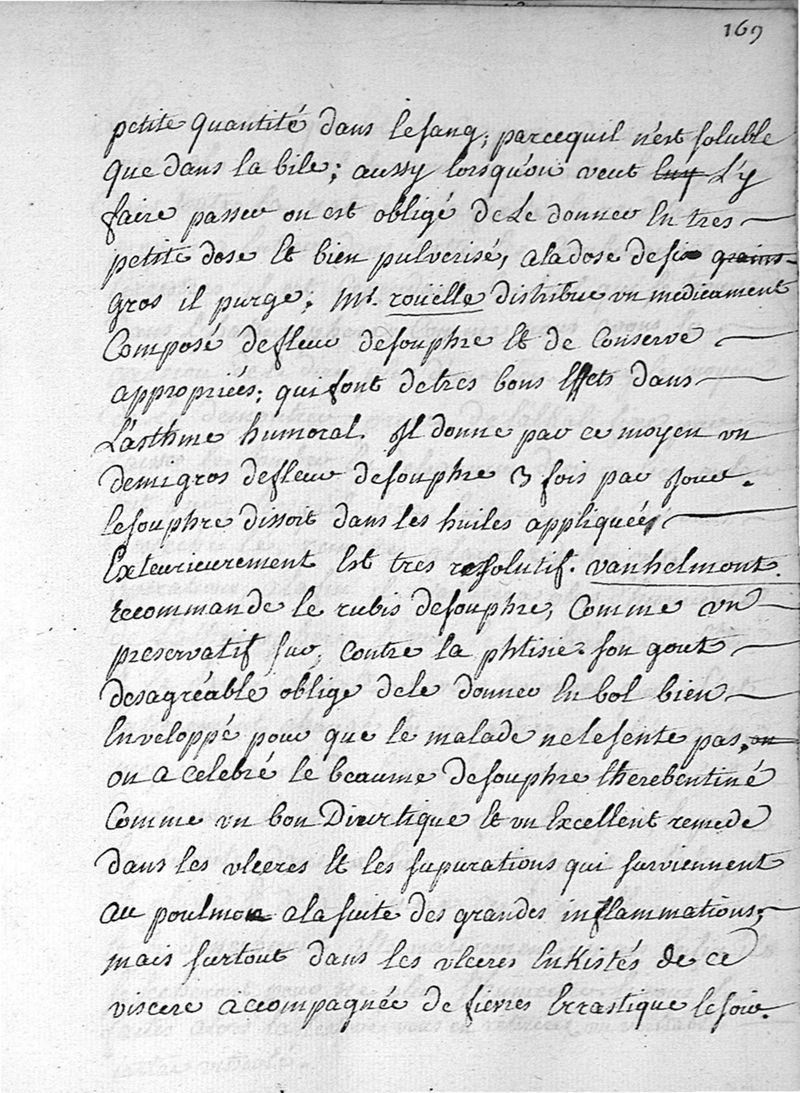 169
petite quantité dans lesang; parcequil n'est soluble
que dans la bile; aussy lorsqu'on veut luy L'y
faire passer on est obligé deLe donner En tres
petite dose Et bien pulverisé, aladose desix grains
gros il purge; Mr. rouelle distribue un medicament
Composé defleur desouphre Et de Conserve
appropriées; qui font detres bons Effets dans
L'asthme humoral. Il donne par ce moyen un
demi gros defleur desouphre 3 fois par jour.
lesouphre dissoit dans les huiles appliquées
Exterieurement Est tres resolutif. vanhelmont.
recommande le rubis desouphre, Comme un
preservatif sur, Contre la phtisie. son gout
desagréable oblige dele donner En bol bien
Enveloppé pour que le malade nelesente pas, on
on a celebré le beaume desouphre therebentiné
Comme un bon Diurtique Et un Excellent remede
dans les ulceres Et les supurations qui surviennent
au poulmon alasuite des grandes inflammations,
mais surtout dans les ulceres EnKistés de ce
viscere accompagnée de fievres Errastique lesoir.